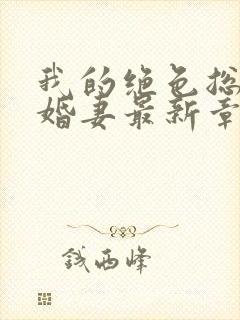 我的绝色总
婚妻最新章
钱西峰